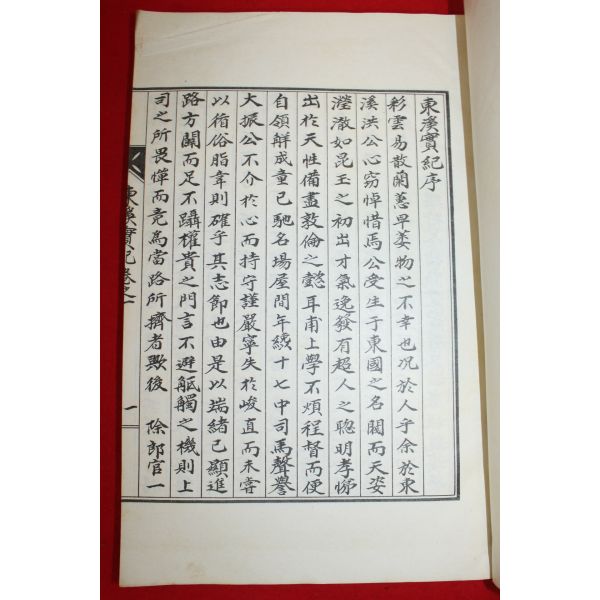 東溪實紀序
彩雲易散蘭蕙早萎物之不幸也况於人乎余於東
溪洪公心竊悼惜焉公受生于東國之名閥而天姿
瀅澈如昆玉之初出才氣逸發有超人之聡明孝悌
出於天性備盡敦倫之懿耳甫上學不煩程督而便
自領觧成童已馳名場屋間年纔十七中司馬聲譽
大振公不介於心而持守謹嚴寧失於峻直而未嘗
以循俗脂韋則確乎其志節也由是以端緒已顯進
路方闢而足不躡權貴之門言不避觝觸之機則上
司之所畏憚而竟為當路所擠者歟後 除郎官一
東溪實紀卷之一
一